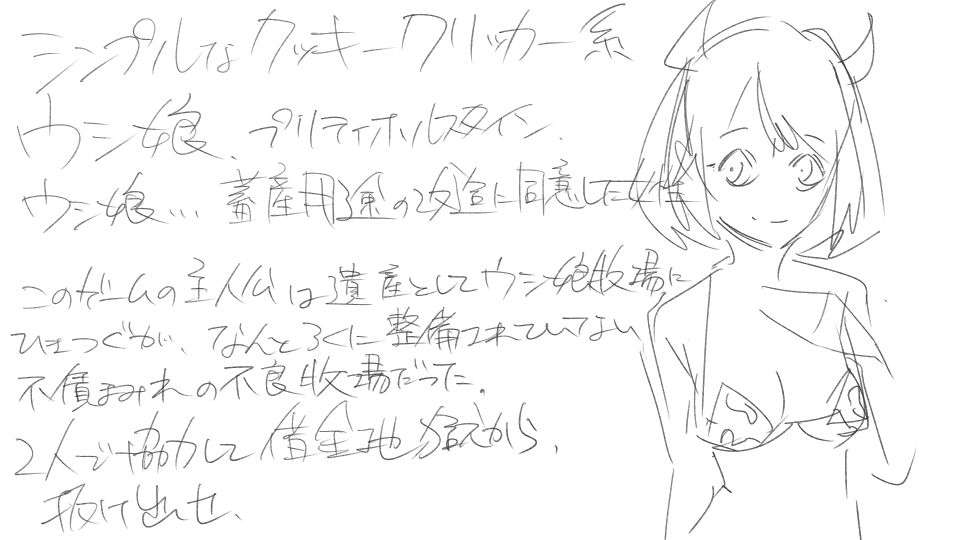 シンプルなクッキークリッカー系
ウシ娘、プリティホルスタイン、
ウシ娘… 畜産用途の改造に同意した女性
このゲームの主人公は遺産としてウシ娘牧場に
ひきつぐが、なんとろくに整備されていてない
不債まみれの不良牧場だった。
2人で協力して借金地獄から、
抜け出せ、